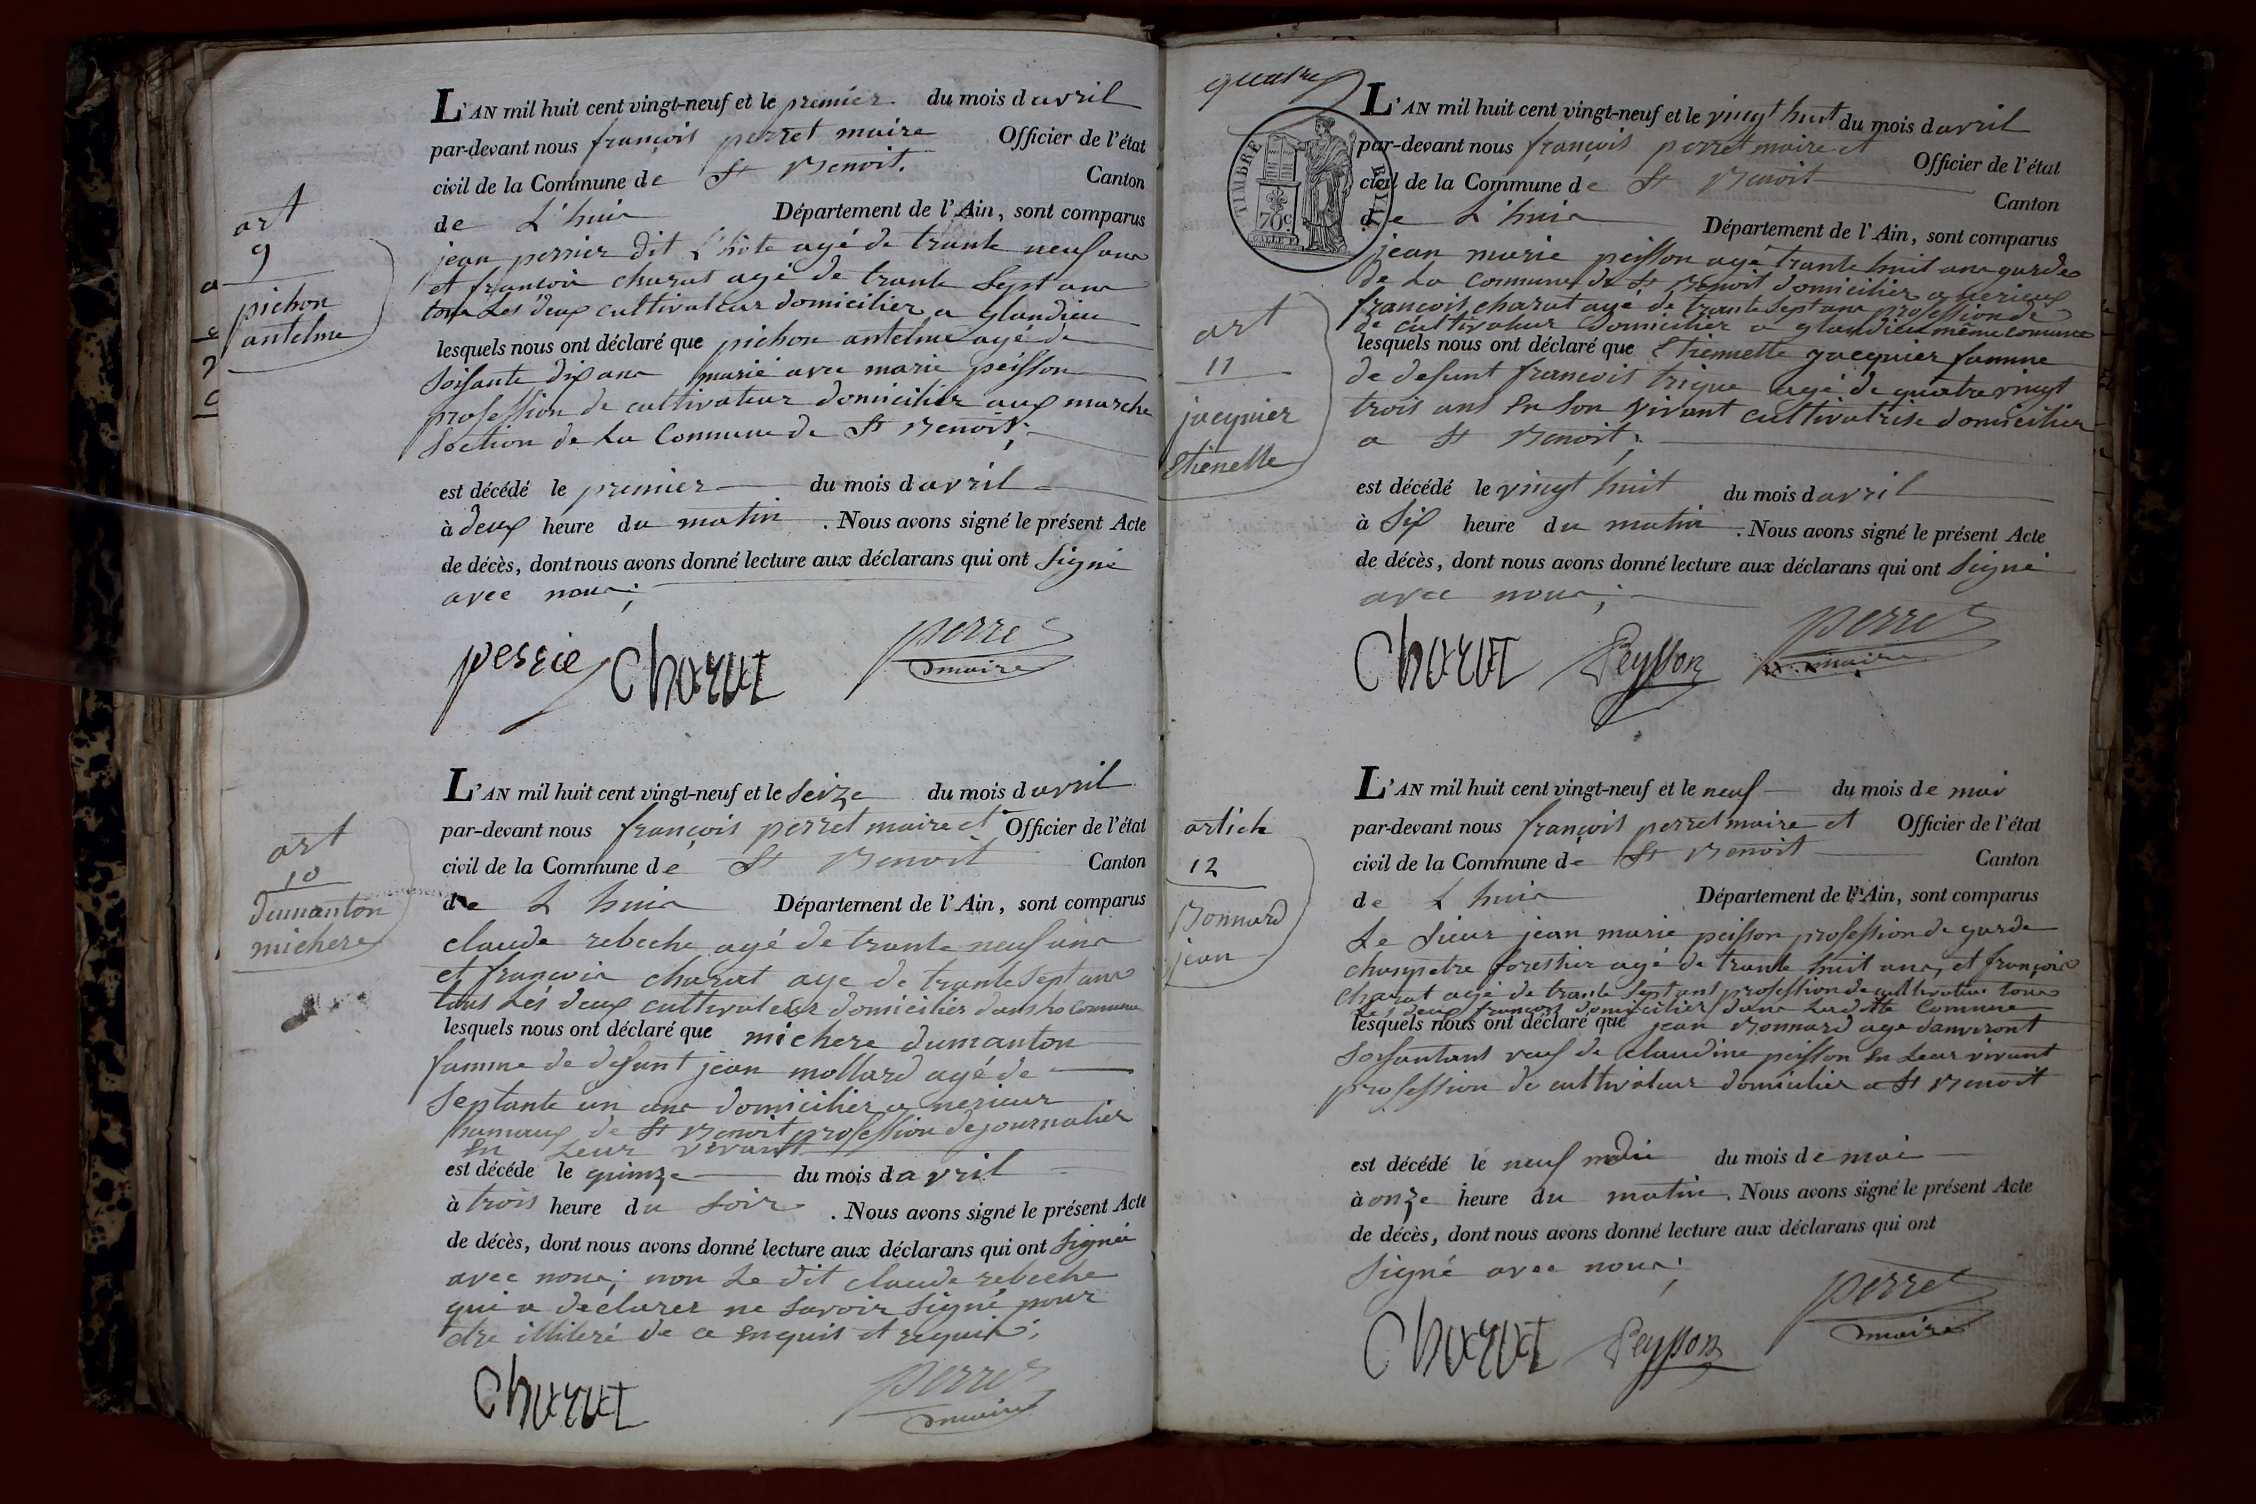 art
9
pichon
antelme
L'AN mil huit cent vingt-neuf et le premier du mois d avril
par-devant nous françois perret maire Officier de l'état
civil de la Commune de St Benoit. Canton
de L'huis Département de l'Ain, sont comparus
jean perrier dit L'hôte agé de trante neuf ans
et francois charat agé de trante Sept ans
tous Les deux cultivateur domicilier a glandieu
lesquels nous ont déclaré que pichon antelme agé de
Soisante dix ans marié avec marie peisson
profession de cultivateur domicilier aux marche
Section de La Commune de St Benoit;
est décédé le premier du mois d avril
à deux heure du matin. Nous avons signé le présent Acte
de décès, dont nous avons donné lecture aux déclarans qui ont Signé
avec nous;
perrie Charat perret
maire
art
10
dumanton
michere
L'AN mil huit cent vingt-neuf et le Seize du mois d avril
par-devant nous françois perret maire et Officier de l'état
civil de la Commune de St Benoit Canton
de L huis Département de l'Ain, sont comparus
claude rebeche agé de trante neuf ans
et francois charat age de trante Sept ans
tous Les deux cultivateur domicilier dans La Commune
lesquels nous ont déclaré que michere dumanton
famme de defunt jean mollard agé de
Septante un ans domicilier a nerieux
hamaux de St Benoit profession de journalier
En Leur vivant
est décédé le quinze du mois d avril
à trois heure du Soir. Nous avons signé le présent Acte
de décès, dont nous avons donné lecture aux déclarans qui ont Signée
avec nous; non Le dit claude rebeche
qui a déclarer ne Savoir Signé pour
etre illiteré de ce Enquis et requis;
Charat perret
maire
quatre
TIMBRE ROYAL
70c.
L'AN mil huit cent vingt-neuf et le vingt huit du mois d avril
par-devant nous françois perret maire et Officier de l'état
civil de la Commune de St Benoit Canton
de L'huis Département de l'Ain, sont comparus
art
11
jacquier
Etienette
jean marie peisson agé trante huit ans garde
de La Commune de St Benoit domicilier a nerieux
francois charat agé de trante Sept ans profession de
de cultivateur domicilier a glandieu même comune
lesquels nous ont déclaré que Etiennette jacquier famme
de defunt francois trique agé de quatre vingt
trois ans En Son vivant cultivatrise domicilier
a St Benoit;
est décédé le vingt huit du mois d avril
à Six heure du matin. Nous avons signé le présent Acte
de décès, dont nous avons donné lecture aux déclarans qui ont Signé
avec nous;
Charat Peysson perret
maire
article
12
Bonnard
jean
L'AN mil huit cent vingt-neuf et le neuf du mois de mai
par-devant nous françois perret maire et Officier de l'état
civil de la Commune de St Benoit Canton
de L huis Département de l'Ain, sont comparus
Le Sieur jean marie peisson profession de garde
champetre forestier agé de trante huit ans, et françois
charat agé de trante Sept ans profession de cultivateur tous
Les deux françois domicilier dans Ladotte Commune
lesquels nous ont déclaré que jean Bonnard age danviront
Soisantans veuf de Claudine peisson En Leur vivant
profession de cultivateur domicilier a St Benoit
est décédé le neuf du mois de mai
à onze heure du matin. Nous avons signé le présent Acte
de décès, dont nous avons donné lecture aux déclarans qui ont
Signé avec nous;
Charat Peysson perret
maire